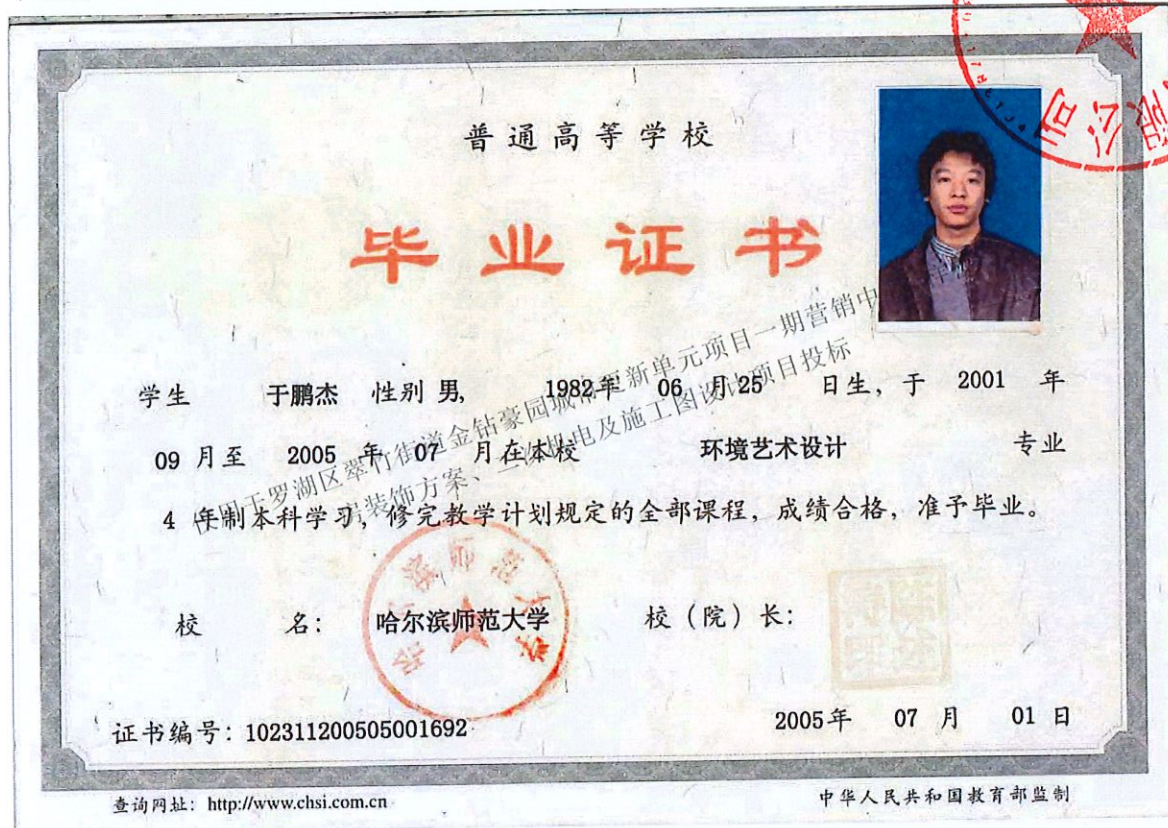 普通高等学校
毕业证书
学生 于鹏杰 性别 男, 1982年 06 月 25 日生, 于 2001 年
09 月至 2005 年 07 月在本校 环境艺术设计 专业
4 年制本科学习, 修完教学计划规定的全部课程, 成绩合格, 准予毕业。
校 名: 哈尔滨师范大学 校(院)长:
证书编号: 102311200505001692 2005年 07 月 01 日
查询网址: http://www.chsi.com.cn 中华人民共和国教育部监制
罗湖区翠竹街道金钻豪园城市更新单元项目一期营销中
房装饰方案、二次机电及施工图设计项目投标
哈尔滨师范大学
限公司